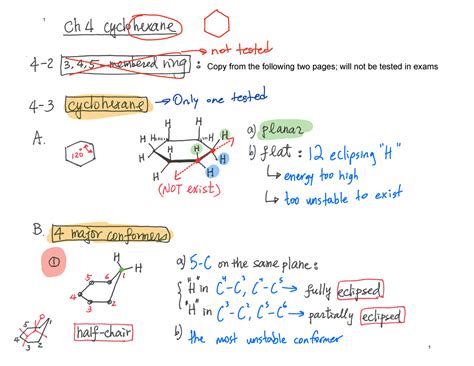 Ch 4 cyclohexane
→ not tested
4-2 3,4,5-membered ring : Copy from the following two pages; will not be tested in exams
4-3 cyclohexane → Only one tested
A.
120°
H H H H H H H H H H
(NOT exist)
a) planar
b) flat : 12 eclipsing "H"
↳ energy too high
↳ too unstable to exist
B. 4 major conformers
①
H
H
5 6 1
4
3 2
half-chair
a) 5-C on the same plane:
"H" in C⁴-C³, C⁴-C⁵ → fully eclipsed
"H" in C³-C², C⁵-C⁶ → partially eclipsed
b) the most unstable conformer
5 6 1
4 3 2
1